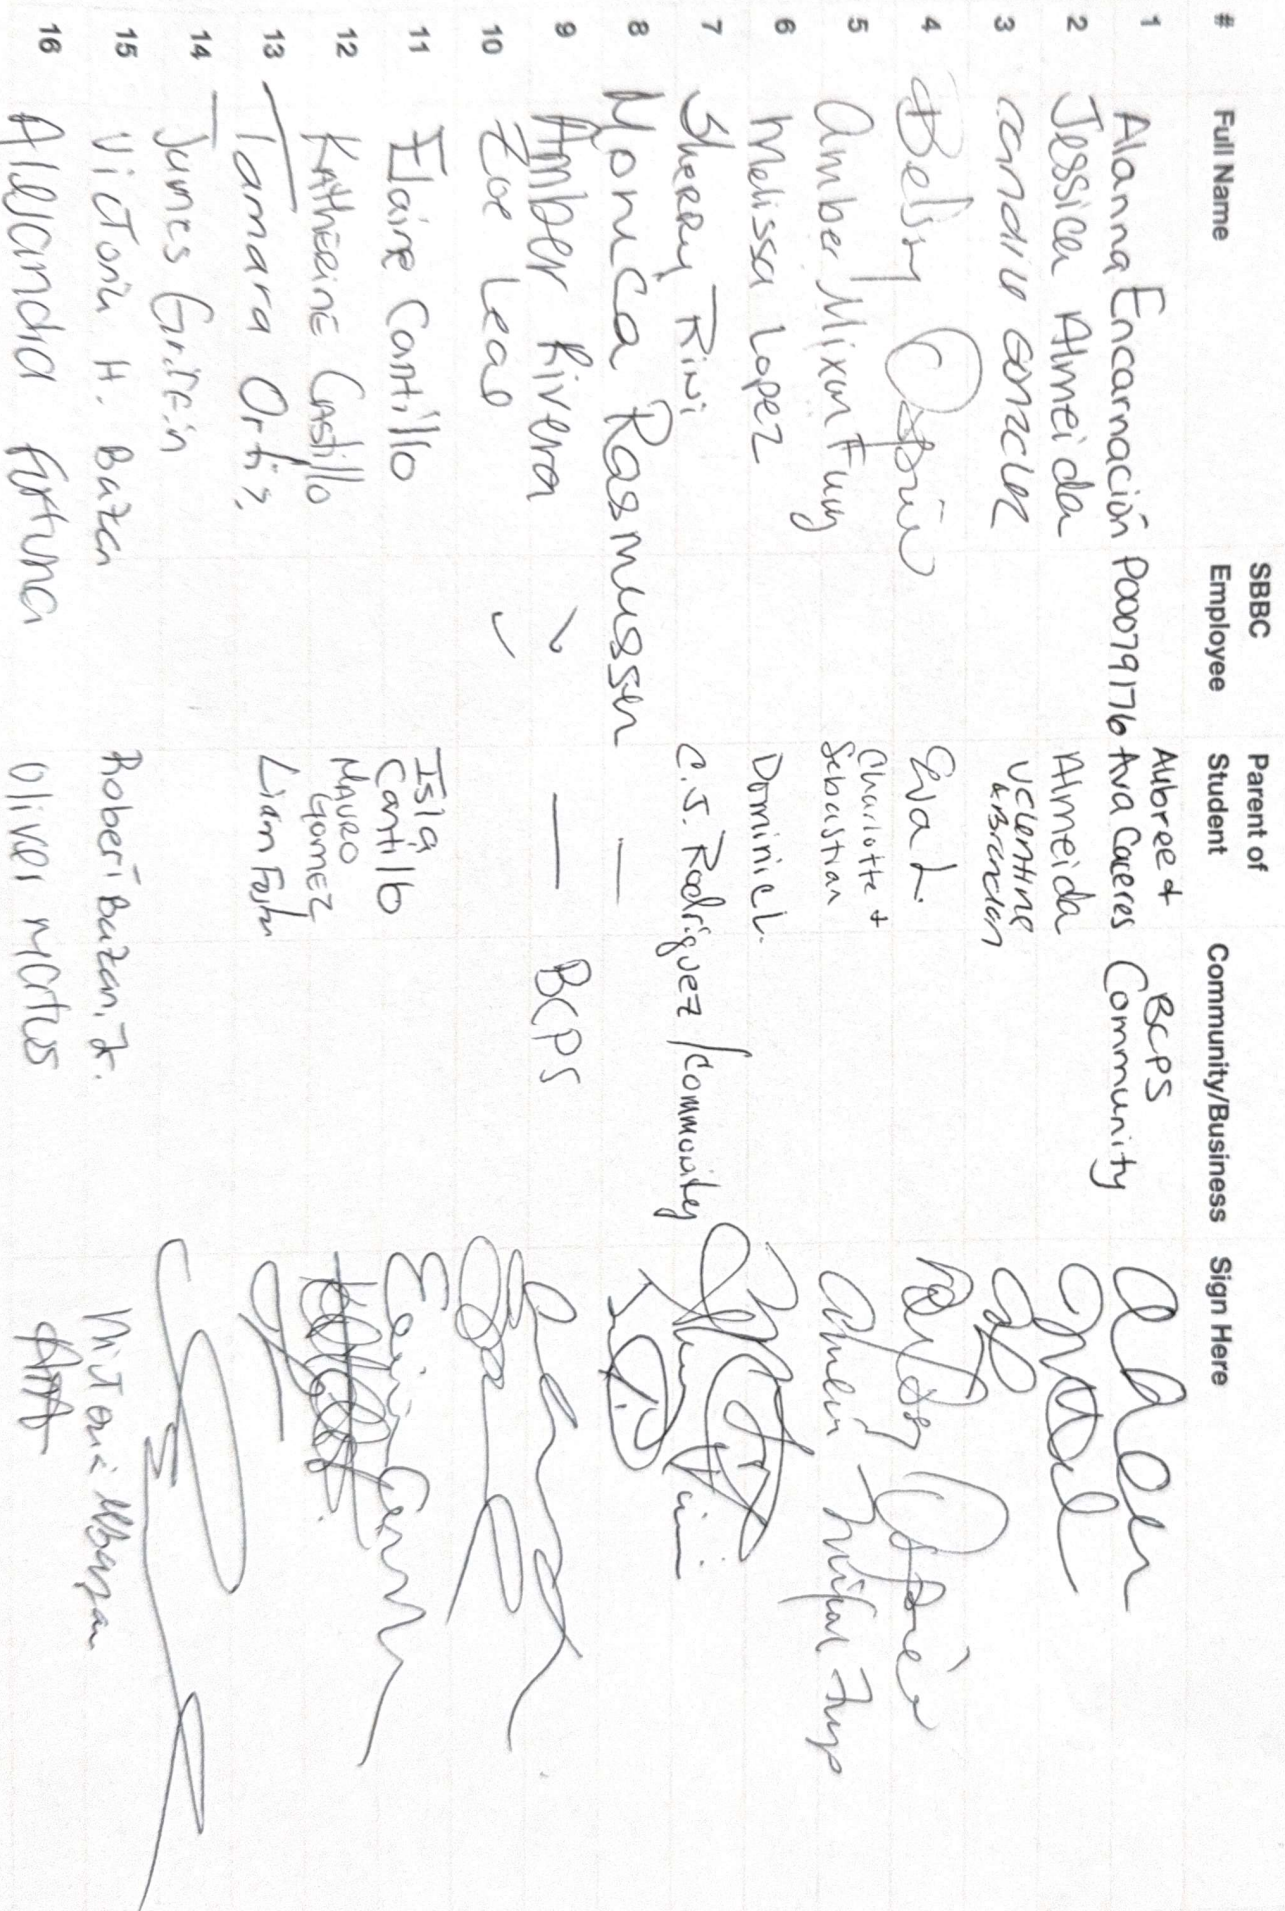 # Full Name SBBC Employee Parent of Student Community/Business Sign Here
1 Alanna Encarnación P00079176 Aubree & Ava Caceres BCPS Community
2 Jessica Almeida Almeida
3 Gonzalez & Brandon
4 Betsy Osorio Eva L. Betsy Osorio
5 Amber Mixon Fung Charlotte + Sebastian
6 Melissa Lopez Dominic L.
7 Sherry Rini C.J. Rodriguez / Community
8 Monica Rasmussen —
9 Amber Rivera ✓ — BCPS
10 Zoe Leal ✓
11 Elaine Cantillo Isla Cantillo
12 Katherine Castillo Mauro Gomez
13 Tamara Ortiz Liam Foster
14 James Griffin
15 Victoria H. Bazan Robert Bazan, Jr.
16 Alejandra Fortuna Oliver